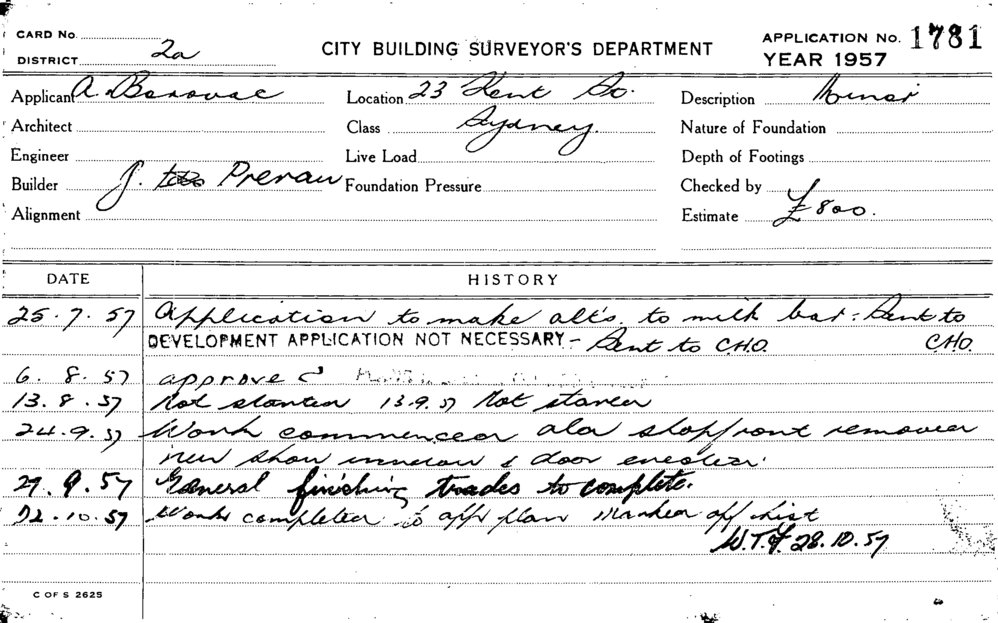 CARD No.
DISTRICT 2a
CITY BUILDING SURVEYOR'S DEPARTMENT
APPLICATION No. 1781
YEAR 1957
Applicant A. Banovac Location 23 Kent St. Description Minor
Architect Class Sydney. Nature of Foundation
Engineer Live Load Depth of Footings
Builder J. Prenau Foundation Pressure Checked by
Alignment Estimate £800.
DATE HISTORY
25.7.57 Application to make alt's. to milk bar: Sent to
DEVELOPMENT APPLICATION NOT NECESSARY - Sent to C.H.O. C.H.O.
6.8.57 approved
13.8.57 Not started 13.9.57 Not started
24.9.57 Work commenced old shopfront removed
new show window & door erected.
27.9.57 General finishing trades to complete.
22.10.57 Work completed to app plan Marked off list
W.T.F. 28.10.57
C OF S 2625